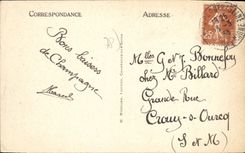 CORRESPONDANCE
ADRESSE
Bons baisers
de Champagne
Marcel
Melles G & Y Bonnefoy
chez Mr Billard
Grande Rue
Crouy-s-Ourcq
(S et M)
25